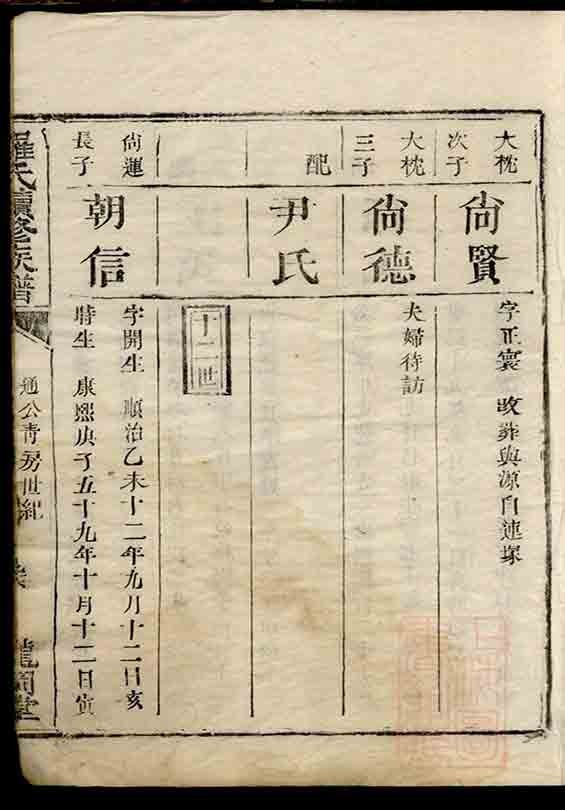 大枕
次子
尙賢
字正寰 改葬與源自連塚
大枕
三子
尙德
夫婦待訪
配
尹氏
十二世
尙運
長子
朝信
字開生 順治乙未十二年九月十二日亥
時生 康熙庚子五十九年十月十二日寅
羅氏續修族譜
通公靑房世紀